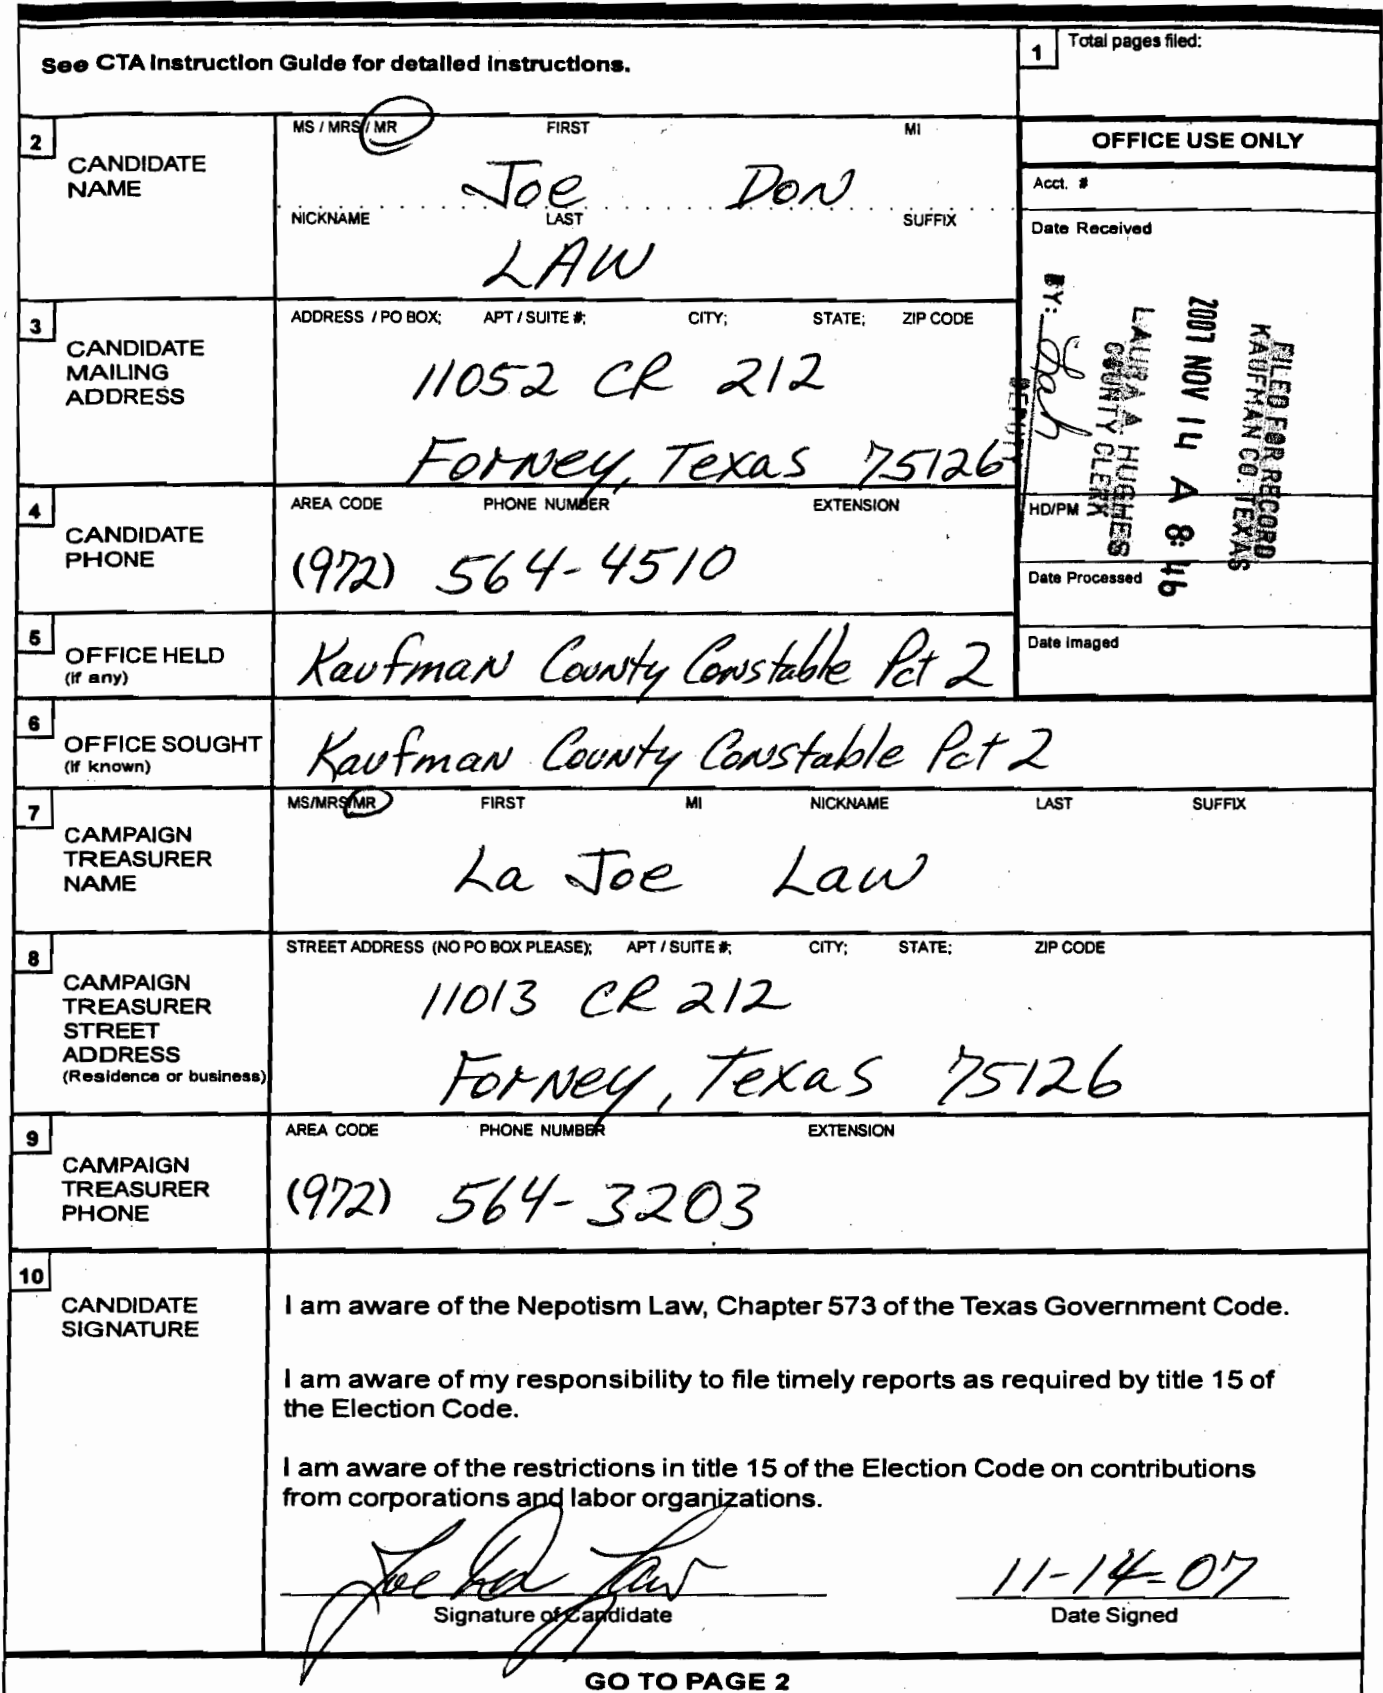 See CTA Instruction Guide for detailed instructions.
1 Total pages filed:
2 CANDIDATE NAME
MS / MRS / MR FIRST MI
Joe Don
NICKNAME LAST SUFFIX
LAW
OFFICE USE ONLY
Acct. #
Date Received
FILED FOR RECORD
KAUFMAN CO. TEXAS
2007 NOV 14 A 8:46
LAURA A HUGHES
COUNTY CLERK
BY:
DEPUTY
HD/PM
Date Processed
Date Imaged
3 CANDIDATE MAILING ADDRESS
ADDRESS / PO BOX; APT / SUITE #; CITY; STATE; ZIP CODE
11052 CR 212
Forney, Texas 75126
4 CANDIDATE PHONE
AREA CODE PHONE NUMBER EXTENSION
(972) 564-4510
5 OFFICE HELD (if any)
Kaufman County Constable Pct 2
6 OFFICE SOUGHT (if known)
Kaufman County Constable Pct 2
7 CAMPAIGN TREASURER NAME
MS/MRS/MR FIRST MI NICKNAME LAST SUFFIX
La Joe Law
8 CAMPAIGN TREASURER STREET ADDRESS (Residence or business)
STREET ADDRESS (NO PO BOX PLEASE); APT / SUITE #; CITY; STATE; ZIP CODE
11013 CR 212
Forney, Texas 75126
9 CAMPAIGN TREASURER PHONE
AREA CODE PHONE NUMBER EXTENSION
(972) 564-3203
10 CANDIDATE SIGNATURE
I am aware of the Nepotism Law, Chapter 573 of the Texas Government Code.
I am aware of my responsibility to file timely reports as required by title 15 of
the Election Code.
I am aware of the restrictions in title 15 of the Election Code on contributions
from corporations and labor organizations.
Joe Don Law 11-14-07
Signature of Candidate Date Signed
GO TO PAGE 2